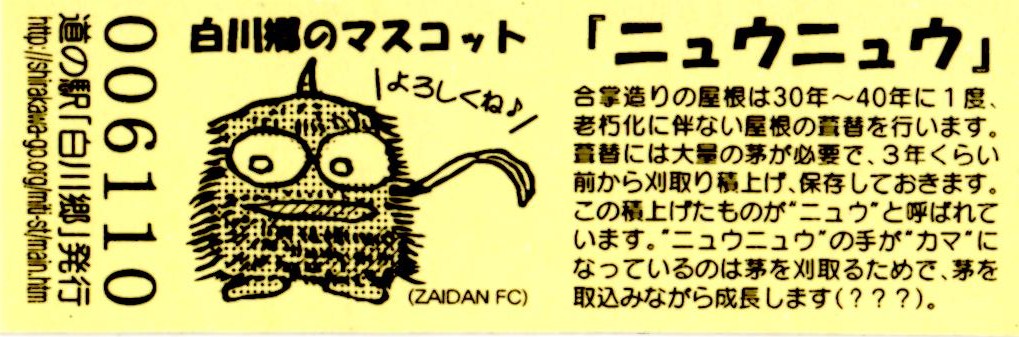 006110
道の駅「白川郷」発行
http://shirakawa-go.org/miti-st/main.htm
白川郷のマスコット
よろしくね♪
(ZAIDAN FC)
『ニュウニュウ』
合掌造りの屋根は30年～40年に1度、
老朽化に伴ない屋根の葺替を行います。
葺替には大量の茅が必要で、3年くらい
前から刈取り積上げ、保存しておきます。
この積上げたものが"ニュウ"と呼ばれて
います。"ニュウニュウ"の手が"カマ"に
なっているのは茅を刈取るためで、茅を
取込みながら成長します(???)。